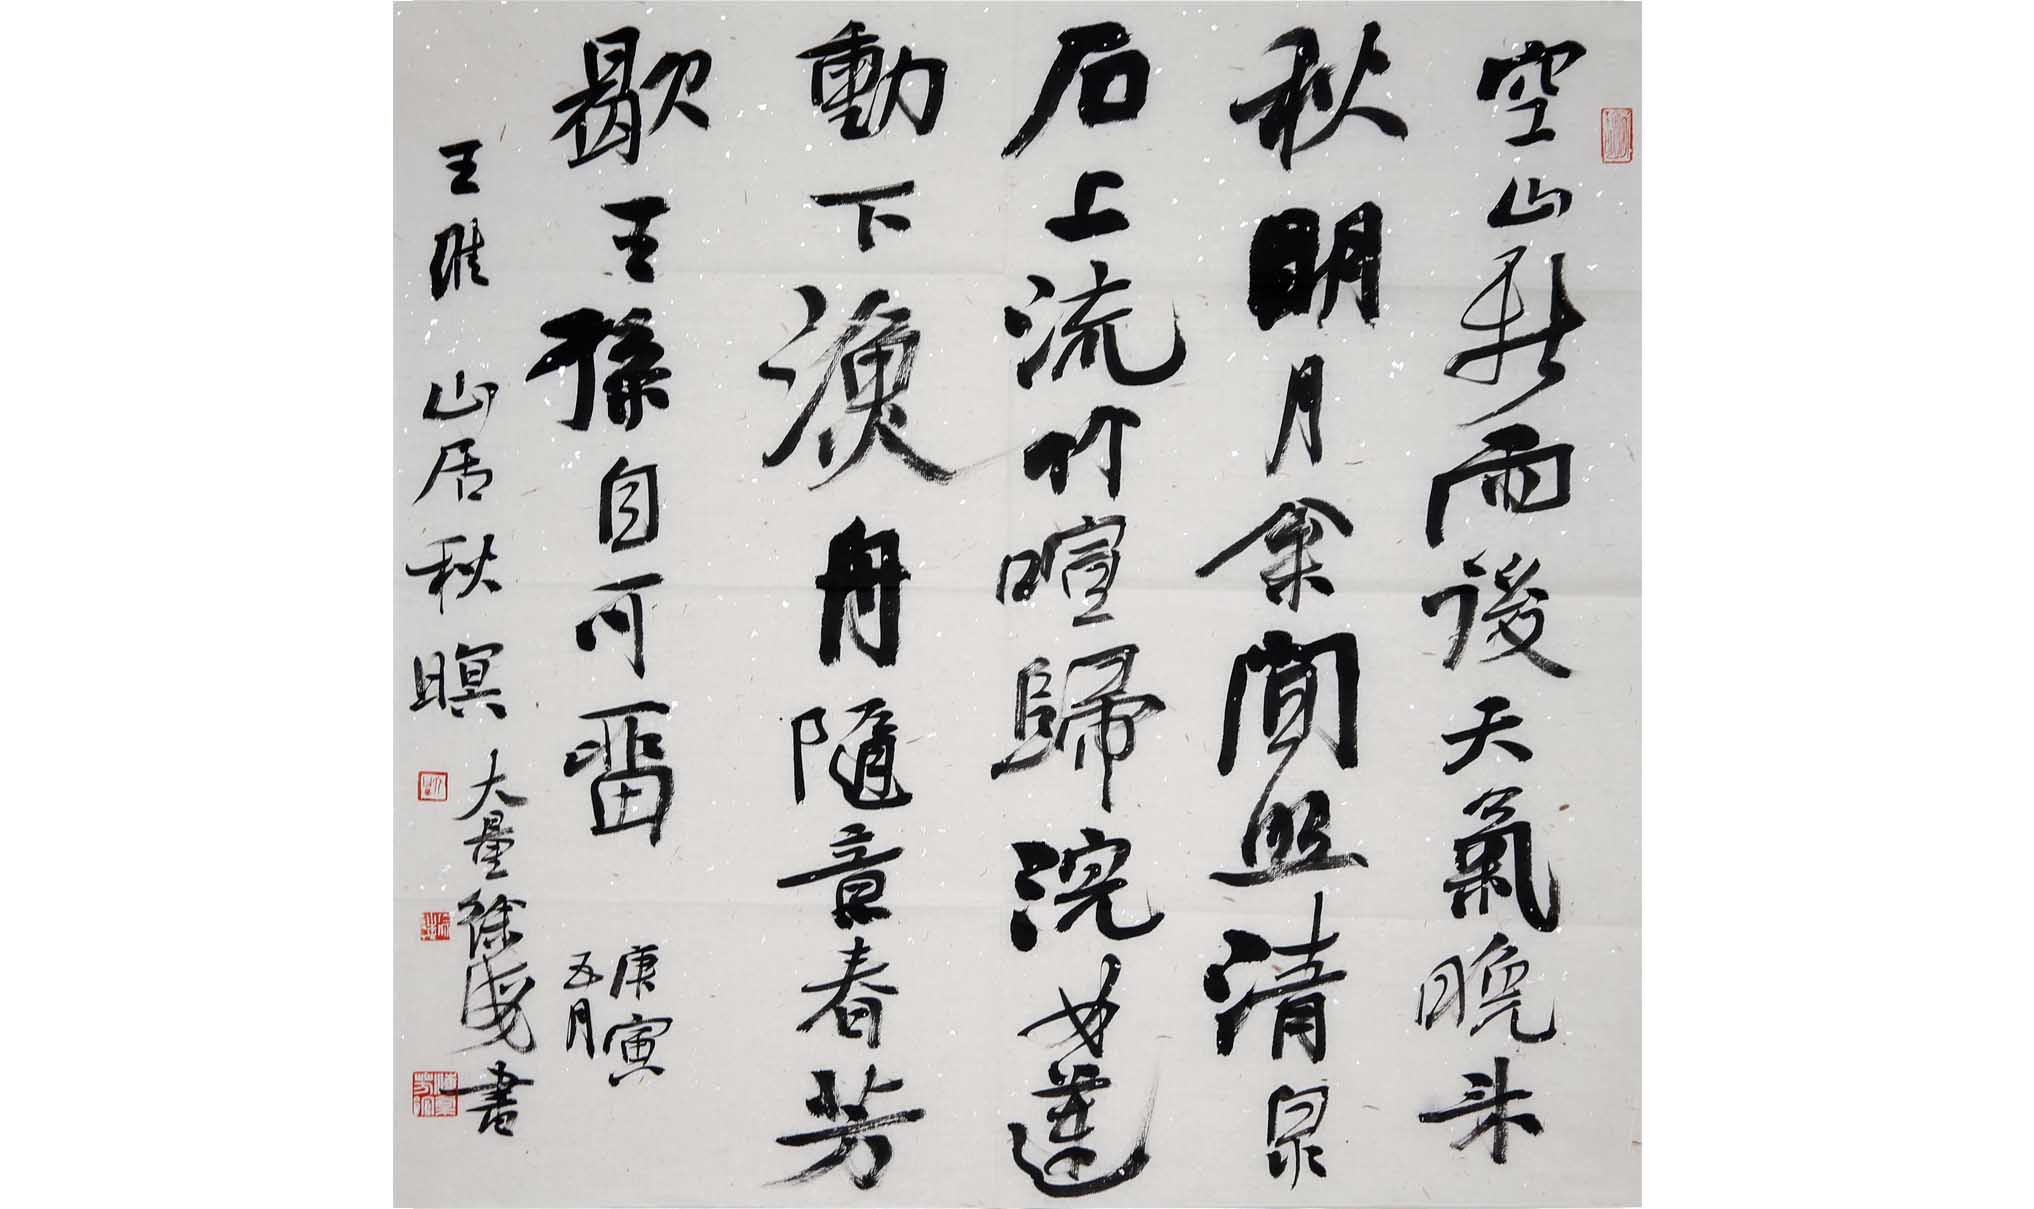 空山新雨後天氣晚来
秋明月松間照清泉
石上流竹喧歸浣女蓮
動下漁舟隨意春芳
歇王孫自可留
庚寅
五月
王維 山居秋暝
大量徐海書